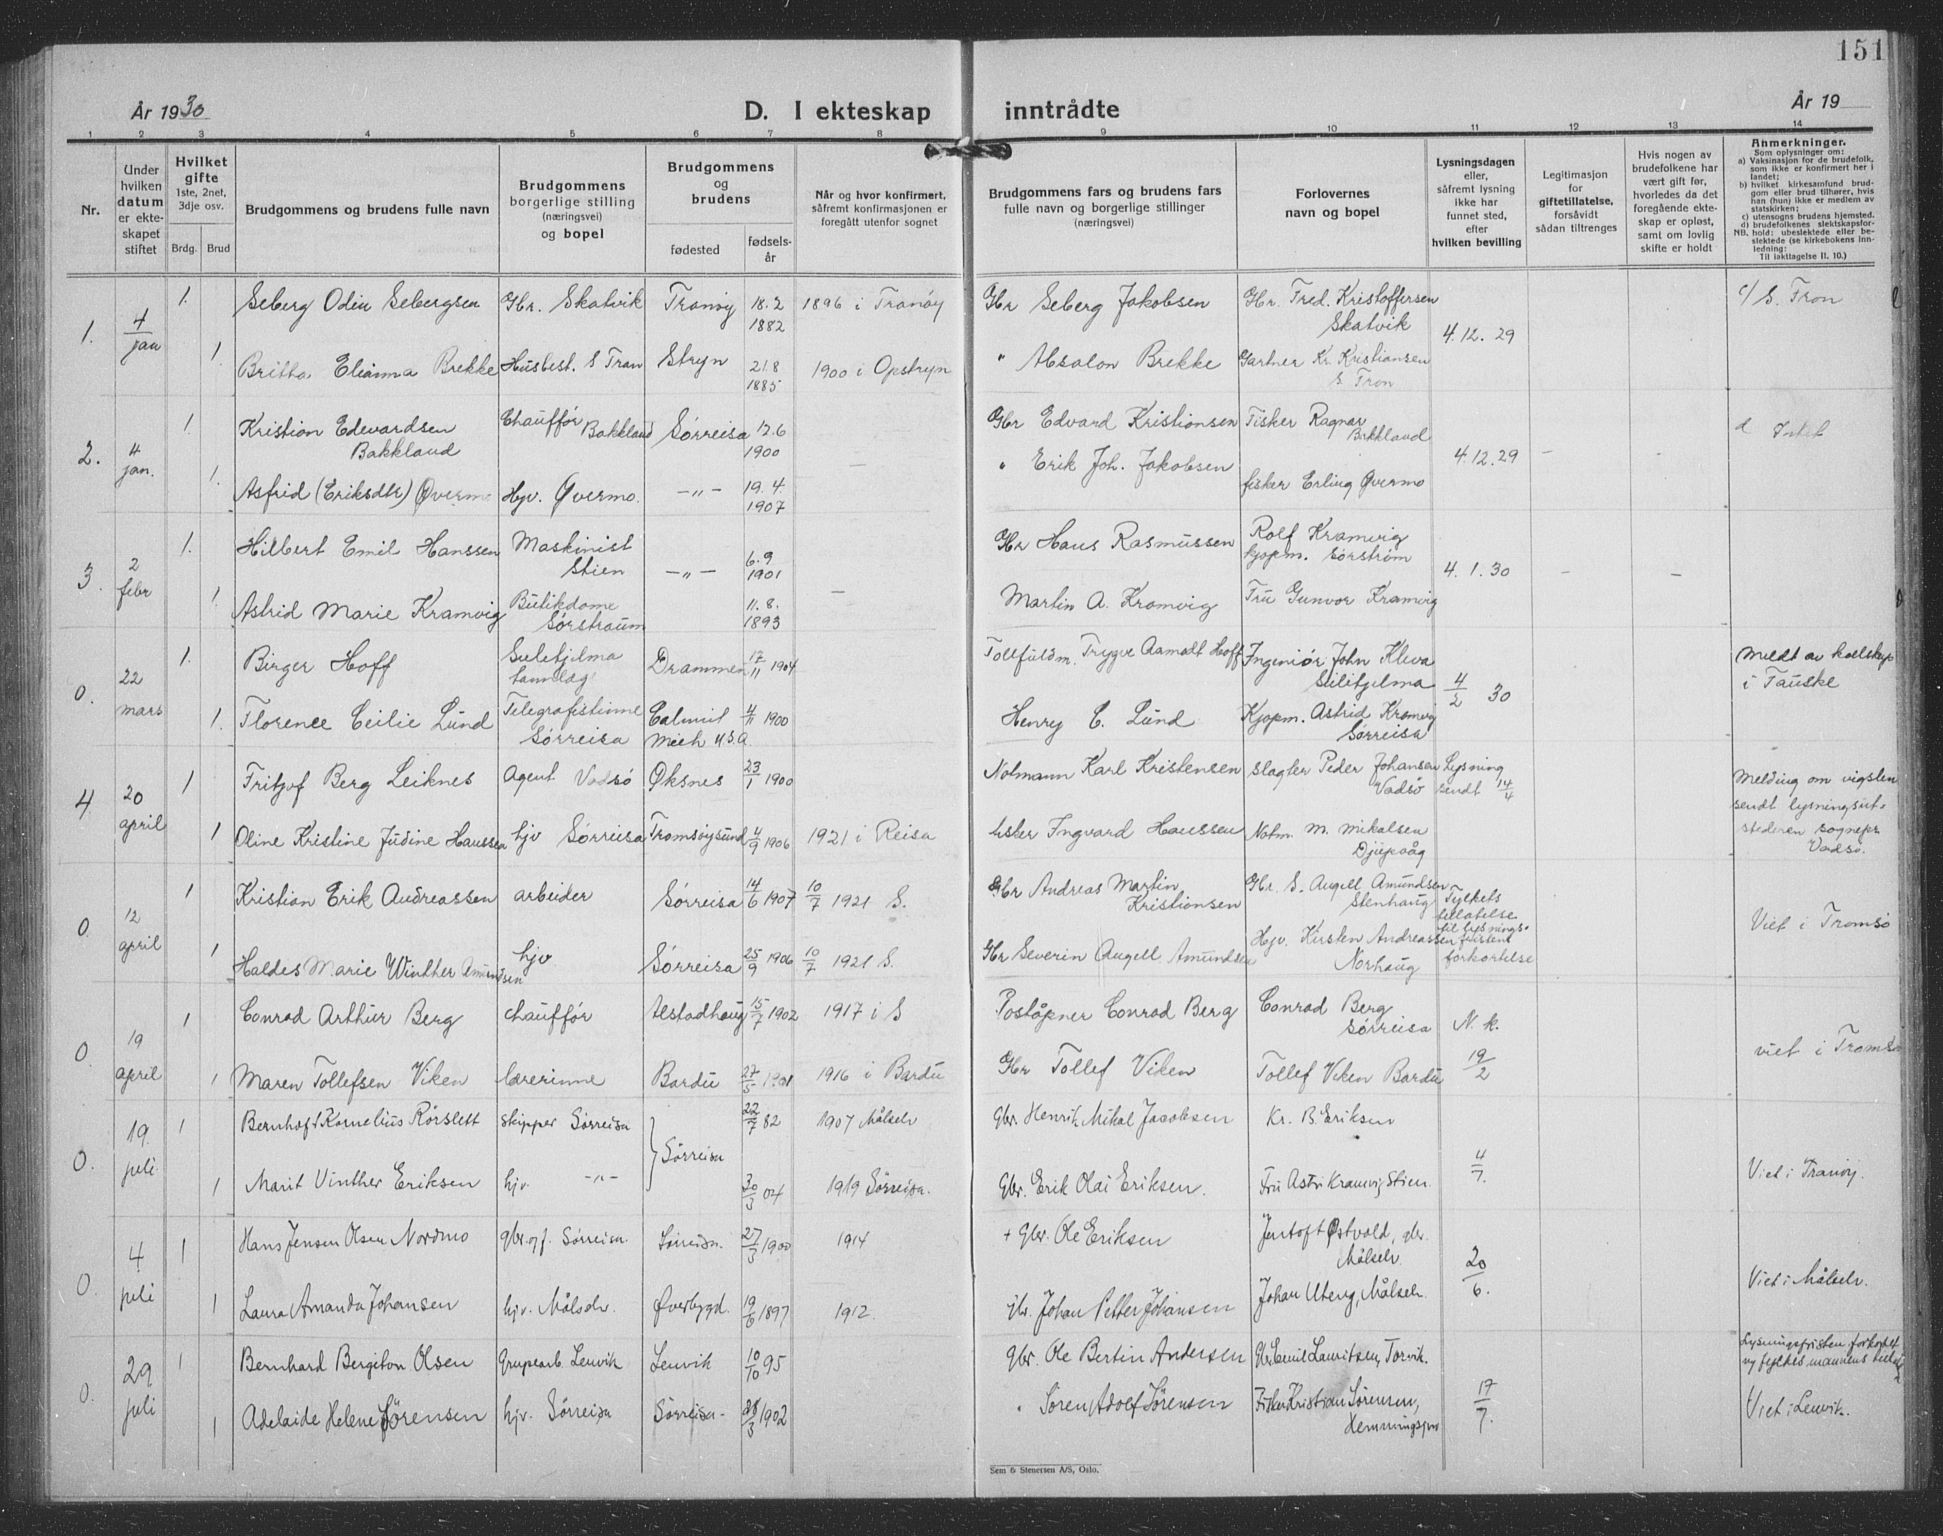 151
År 1930
D. I ekteskap inntrådte
År 19
1 2 3 4 5 6 7 8 9 10 11 12 13 14
Nr.
Under
hvilken
datum
er ekte-
skapet
stiftet
Hvilket
gifte
1ste, 2net,
3dje osv.
Brdg. Brud
Brudgommens og brudens fulle navn
Brudgommens
borgerlige stilling
(næringsvei)
og bopel
Brudgommens
og
brudens
fødested
fødsels-
år
Når og hvor konfirmert,
såfremt konfirmasjonen er
foregått utenfor sognet
Brudgommens fars og brudens fars
fulle navn og borgerlige stillinger
(næringsvei)
Forlovernes
navn og bopel
Lysningsdagen
eller,
såfremt lysning
ikke har
funnet sted,
efter
hvilken bevilling
Legitimasjon
for
giftetillatelse,
forsåvidt
sådan tiltrenges
Hvis nogen av
brudefolkene har
vært gift før,
hvorledes da det
foregående ekte-
skap er opløst,
samt om lovlig
skifte er holdt
Anmerkninger.
Som oplysninger om:
a) Vaksinasjon for de brudefolk,
som ikke er konfirmert her i
landet;
b) hvilket kirkesamfund brud-
gom eller brud tilhører, hvis
han (hun) ikke er medlem av
statskirken;
c) utensogns brudens hjemsted.
d) brudefolkenes slektskapsfor-
NB. hold: ubeslektede eller be-
slektede (se kirkebokens inn-
ledning:
Til iakttagelse II. 10.)
1. 4 jan 1. Seberg Odin Sebergsen Gbr. Skatvik Tranøy 18.2 1882 1896 i Tranøy Gbr Seberg Jakobsen Gbr. Fred. Kristoffersen Skatvik 4.12.29 c/ S. Tron
1. Britha Elianna Brekke Husbest. S Tran Stryn 21.8 1885 1900 i Opstryn " Absalon Brekke Gartner Kr. Kristiansen S. Tron
2. 4 jan. 1. Kristian Edevardsen Bakkland Chauffør Bakkland Sørreisa 12.6 1900 — Gbr Edvard Kristiansen Fisker Ragnar Bakkland 4.12.29 — d
1. Asfrid (Eriksdtr) Øvermo Hjv. Øvermo. —"— 19.4. 1907 " Erik Joh. Jakobsen fisker Erling Øvermo
3. 2 febr 1. Hilbert Emil Hanssen Maskinist Stien —"— 6.9 1901 — Gbr Hans Rasmussen Rolf Kramvig kjøpm. Sørstrøm 4.1.30 — —
1. Astrid Marie Kramvig Butikdame Sørstraum 11.8. 1893 Martin A. Kramvig Fru Gunvor Kramvig
0. 22 mars 1. Birger Hoff Sulitjelma tannlæg Drammen 17/11 1904 Tollfuldm. Trygve Aamodt Hoff Ingeniør John Kleva Sulitjelma 4/2 30 Meldt av
i Fauske
1. Florence Ceilie Lund Telegrafistinne Sørreisa Calmut Mich U.S.A. 4/11 1900 Henry C. Lund Kjøpm. Astrid Kramvig Sørreisa
4. 20 april 1 Fritjof Berg Leiknes Agent Vadsø Øksnes 23/1 1900 Notmann Karl Kristensen slagter Peder Johansen Vadsø Lysning sendt 14/4 Melding om vigslen
sendt lysningsut-
stederen sognepr
Vadsø.
1 Oline Kristine Judine Hanssen hjv Sørreisa Tromsøysund 4/9 1906 1921 i Reisa fisker Ingvard Hanssen Notm. M. Mikalsen Djupvåg
0. 12 april 1 Kristian Erik Andreassen arbeider Sørreisa 14/6 1907 10/7 1921 S. Gbr Andreas Martin Kristiansen Gbr. S. Augell Amundsen Stenhaug Fylkets
tillatelse
til lysnings-
fristens
forkortelse Viet i Tromsø
1 Haldis Marie Winther Amundsen hjv. Sørreisa 25/9 1906 10/7 1921 S. Gbr Severin Augell Amundsen Hjv. Kirsten Andreassen Norhaug
0. 19 april 1 Conrad Arthur Berg chauffør Alstadhaug 15/7 1902 1917 i S Poståpner Conrad Berg Conrad Berg Sørreisa N. k. 19/2 viet i Tromsø
1 Maren Tollefsen Viken lærerinne Bardu 27/5 1901 1916 i Bardu Gbr Tollef Viken Tollef Viken Bardu
0. 19. juli 1 Bernhoft Kornelius Rørslett skipper Sørreisa Sørreisa 22/7 82 1907 Målselv gbr. Henrik Mikal Jacobsen Kr. B. Eriksen 4/7. Viet i Tranøy.
1 Marit Vinther Eriksen hjv. —"— 30/3 04 1919 Sørreisa. gbr. Erik Olai Eriksen. Fru Astri Kramvig Stien
0. 4 juli 1 Hans Jensen Olsen Nordmo gbr. og f. Sørreisa. Sørreisa. 27/3 1900 1914 + gbr. Ole Eriksen Jentoft Østvold, gbr. Målselv. 20/6. Viet i Målselv.
1 Laura Amanda Johansen hjv. Målselv. Øverbygd. 19/6 1897 1912. gbr. Johan Petter Johansen Johan Uteng, Målselv.
0. 29 juli 1 Bernhard Bergiton Olsen Grupearb. Lenvik Lenvik 10/10 95 gbr. Ole Bertin Andersen Gbr. Emil Lauritsen, Torvik. 17/7. Lysningsfristen forkortet
Viet i Lenvik.
1 Adelaide Helene Sörensen hjv. Sørreisa Sørreisa. 28/3 1902 " Søren Adolf Sørensen Fisker Kristian Sørensen, Hemmingsjord
Sem & Stenersen A/S, Oslo.